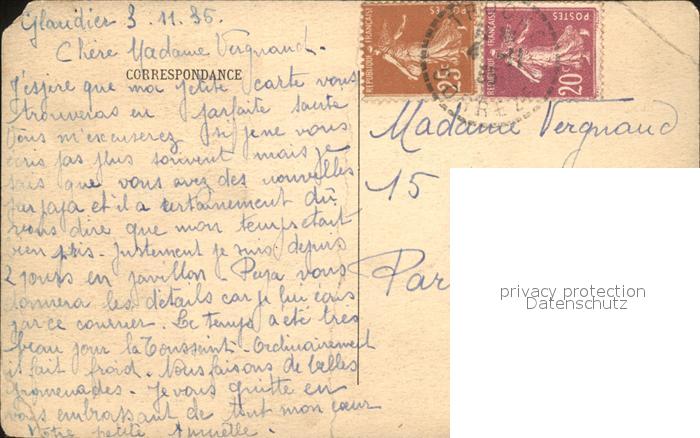 Glandier 3.11.35.
Chère Madame Vergnaud.
CORRESPONDANCE
J'espère que ma petite carte vous
trouveras en parfaite santé
Vous m'excuserez si je ne vous
écris pas plus souvent mais je
sais que vous avez des nouvelles
par papa et il a certainement dû
vous dire que mon temps était
bien pris. Justement je suis depuis
2 jours en pavillon. Papa vous
donnera les détails car je lui écris
par ce courrier. Le temps a été très
beau jour la Toussaint. Ordinairement
il fait froid. Nous faisons de belles
promenades. Je vous quitte en
vous embrassant de tout mon cœur
Votre petite
REPUBLIQUE FRANÇAISE
POSTES
25c
REPUBLIQUE FRANÇAISE
POSTES
20c
Madame Vergnaud
15
Par
privacy protection
Datenschutz